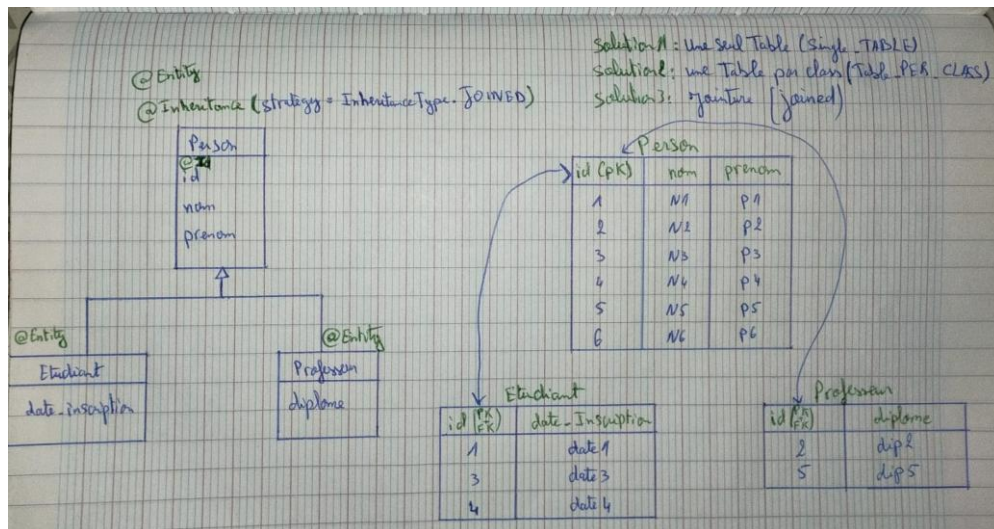 Solution1: une seul Table (Single_TABLE)
Solution2: une Table par class (Table_PER_CLASS)
Solution3: jointure (joined)
@Entity
@Inheritance (strategy = InheritanceType.JOINED)
Person
id
nom
prenom
@Entity
Etudiant
date_inscription
@Entity
Professeur
diplome
Person
id (PK) nom prenom
1 N1 P1
2 N2 P2
3 N3 P3
4 N4 P4
5 N5 P5
6 N6 P6
Etudiant
id (PK FK) date_Inscription
1 date1
3 date3
4 date4
Professeur
id (PK FK) diplome
2 dip2
5 dip5